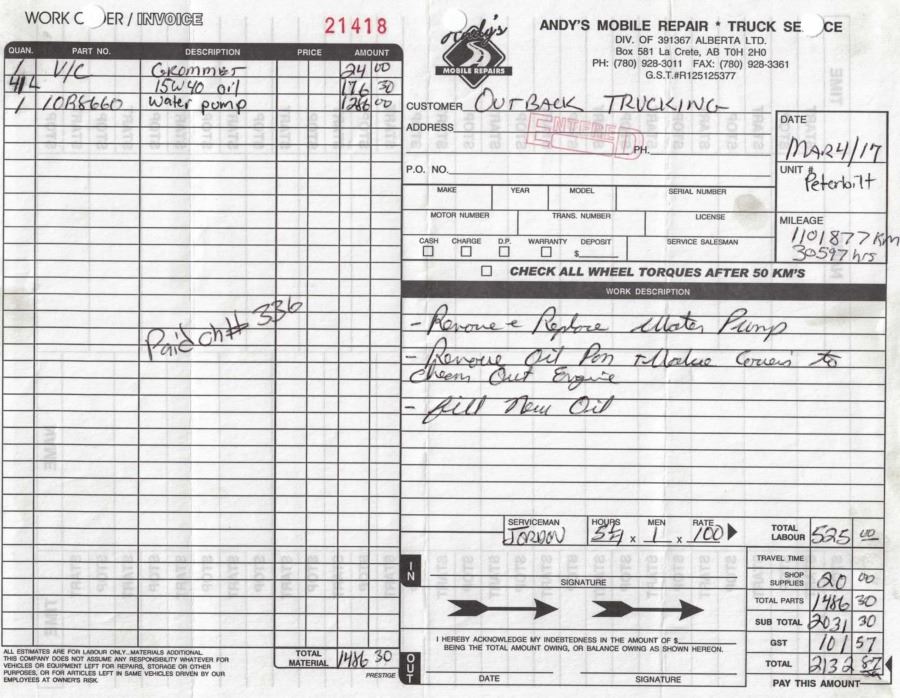 WORK ORDER / INVOICE
21418
QUAN. PART NO. DESCRIPTION PRICE AMOUNT
1 V/C Grommet 24 00
41 L 15W40 oil 176 30
1 10R8660 Water pump 1286 00
Paid ch# 336
ALL ESTIMATES ARE FOR LABOUR ONLY...MATERIALS ADDITIONAL.
THIS COMPANY DOES NOT ASSUME ANY RESPONSIBILITY WHATEVER FOR
VEHICLES OR EQUIPMENT LEFT FOR REPAIRS, STORAGE OR OTHER
PURPOSES, OR FOR ARTICLES LEFT IN SAME VEHICLES DRIVEN BY OUR
EMPLOYEES AT OWNER'S RISK.
TOTAL MATERIAL 1486 30
PRESTIGE
Andy's
MOBILE REPAIRS
ANDY'S MOBILE REPAIR * TRUCK SE CE
DIV. OF 391367 ALBERTA LTD.
Box 581 La Crete, AB T0H 2H0
PH: (780) 928-3011 FAX: (780) 928-3361
G.S.T.#R125125377
CUSTOMER OUTBACK TRUCKING
ADDRESS
ENTERED
PH.
P.O. NO.
DATE
MAR 4/17
UNIT #
Peterbilt
MAKE YEAR MODEL SERIAL NUMBER
MOTOR NUMBER TRANS. NUMBER LICENSE
MILEAGE
1101877 KM
30597 hrs
CASH CHARGE D.P. WARRANTY DEPOSIT SERVICE SALESMAN
$
CHECK ALL WHEEL TORQUES AFTER 50 KM'S
WORK DESCRIPTION
- Remove + Replace Water Pump
- Remove Oil Pan + Valve Covers to
Clean Out Engine
- fill New Oil
SERVICEMAN HOURS MEN RATE
JORDON 5¼ x 1 x 100
TOTAL LABOUR 525 00
TRAVEL TIME
IN
SIGNATURE
SHOP SUPPLIES 20 00
TOTAL PARTS 1486 30
SUB TOTAL 2031 30
GST 101 57
TOTAL 2132 87
I HEREBY ACKNOWLEDGE MY INDEBTEDNESS IN THE AMOUNT OF $
BEING THE TOTAL AMOUNT OWING, OR BALANCE OWING AS SHOWN HEREON.
OUT
DATE SIGNATURE
PAY THIS AMOUNT